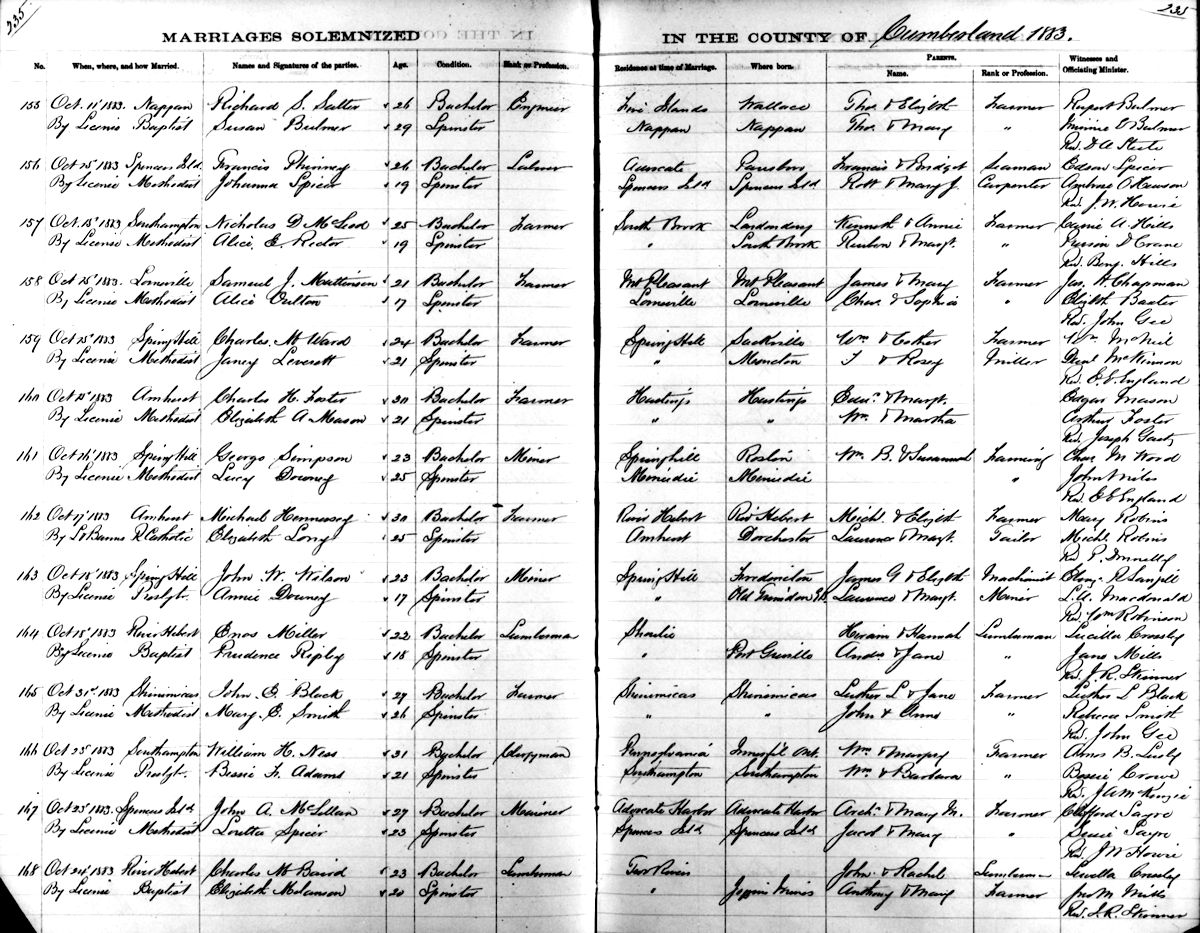 235
235
MARRIAGES SOLEMNIZED IN THE COUNTY OF Cumberland 1883.
No. When, where, and how Married. Names and Signatures of the parties. Age. Condition. Rank or Profession. Residence at time of Marriage. Where born. PARENTS. Name. Rank or Profession. Witnesses and Officiating Minister.
155 Oct. 11th 1883 Nappan Richard S. Salter 26 Bachelor Engineer Five Islands Wallace Thos & Elizbth Farmer Rupert Bulmer
By License Baptist Susan Bulmer 29 Spinster Nappan Nappan Thos & Mary " Minnie D Bulmer
Rev. D A Steele
156 Oct 15th 1883 Spencers Isld. Francis Phinney 26 Bachelor Laborer Advocate Parrsboro Francis & Bridget Seaman Edson Spicer
By License Methodist Johanna Spicer 19 Spinster Spencers Isld Spencers Isld Robt & Mary J. Carpenter
Rev. J. W. Howie
157 Oct. 15th 1883 Southampton Nicholas D McLeod 25 Bachelor Farmer South Brook Kenneth & Annie Farmer A Hills
By License Methodist Alice E Rector 19 Spinster " South Brook Reuben & Margt. " D Crane
Rev. Benj. Hills
158 Oct 15th 1883. Lorneville Samuel J. Mattinson 21 Bachelor Farmer Mt Pleasant Mt Pleasant James & Mary Farmer Jas. W. Chapman
By License Methodist Alice Oulton 17 Spinster Lorneville Lorneville Chas. & Sophia " Elizbth Baxter
Rev. John Gee
159 Oct 15th 1883 Spring Hill Charles M Ward 24 Bachelor Farmer Spring Hill Sackville Wm & Esther Farmer Wm McNeil
By License Methodist Janey Leverett 21 Spinster " Moncton T & Rosey Miller McKinnon
Rev. E E. England
160 Oct 15th 1883 Amherst Charles H. Foster 30 Bachelor Farmer Hastings Hastings Edwd. & Margt. Edgar Mason
By License Methodist Elizabeth A Mason 21 Spinster " " Wm. & Martha Arthur Foster
Rev. Joseph Gaetz
161 Oct 16th 1883 Spring Hill George Simpson 23 Bachelor Miner Springhill Roslin Wm B. & Susannah Farming Chas M Word
By License Methodist Lucy Downey 25 Spinster Minudie Minudie " John Miles
Rev E E England
162 Oct 17th 1883 Amherst Michael Hennessey 30 Bachelor Farmer River Hebert Riv Hebert Michl & Elizbth Farmer Mary Robins
By Banns R Catholic Elizabeth Long 25 Spinster Amherst Dorchester Laurence & Margt. Tailor Michl Robins
Rev P. Donnelly
163 Oct 18th 1883 Spring Hill John W. Wilson 23 Bachelor Miner Spring Hill Fredericton James G & Elizbth Machinist
By License Presbyt. Annie Downey 17 Spinster " Laurence & Margt. Miner L. A. Macdonald
Rev. Wm Robinson
164 Oct 18th 1883 River Hebert Enos Miller 22 Bachelor Lumberman Shoulie Hiram & Hannah Lumberman Lucilla Crossley
By License Baptist Prudence Ripley 18 Spinster " Port Greville Andw & Jane " Jane Mills
Rev. J. R. Skinner
165 Oct 31st. 1883 Shinimicas John G Black 27 Bachelor Farmer Shinimicas Shinimicas Luther L & Jane Farmer Luther L Black
By License Methodist Mary E. Smith 26 Spinster " " John & Anne " Rebecca Smith
Rev. John Gee
166 Oct 23rd 1883 Southampton William H. Ness 31 Bachelor Clergyman Pennsylvania Innisfil Ont. Wm & Margery Farmer Amos B. Lusby
By License Presbyt. Bessie F. Adams 21 Spinster Southampton Southampton Wm & Barbara " Bessie Crowe
Rev. J A McKenzie
167 Oct 23rd 1883. Spencers Isld John A. McLellan 27 Bachelor Mariner Advocate Harbor Advocate Harbor Archd. & Mary M. Farmer Clifford Sayre
By License Methodist Loretta Spicer 23 Spinster Spencers Isld Spencers Isld Jacob & Mary " Jessie Sayre
Rev. J W Howie
168 Oct 24th 1883 River Hebert Charles M Baird 23 Bachelor Lumberman Two Rivers John & Rachel Lumberman Luella Crossley
By License Baptist Elizabeth Melanson 20 Spinster " Joggins Mines Anthony & Mary Farmer Jno M Mills
Rev. J. R. Skinner